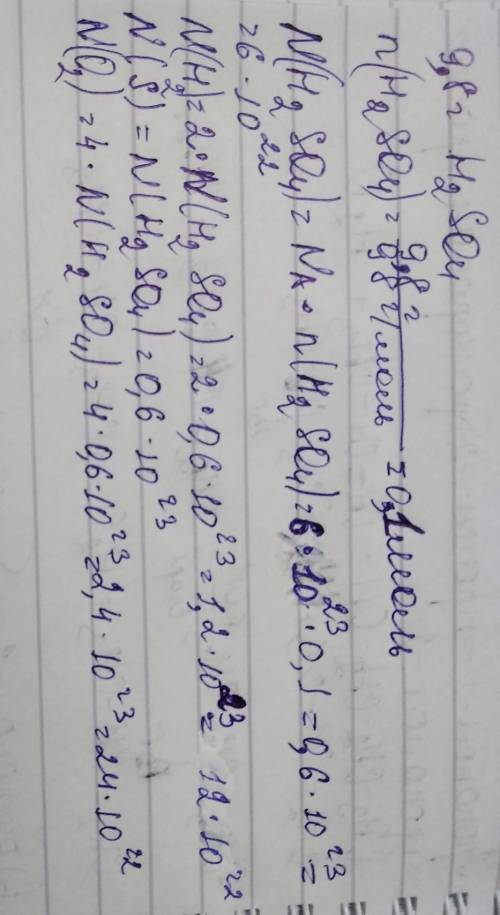 9,8 г H₂SO₄
n(H₂SO₄) = 9,8 г / 98 г/моль = 0,1 моль
N(H₂SO₄) = N_A • n(H₂SO₄) = 6 • 10²³ • 0,1 = 0,6 • 10²³ =
= 6 • 10²²
N(H₂) = 2 • N(H₂SO₄) = 2 • 0,6 • 10²³ = 1,2 • 10²³ = 12 • 10²²
N(S) = N(H₂SO₄) = 0,6 • 10²³
N(O₂) = 4 • N(H₂SO₄) = 4 • 0,6 • 10²³ = 2,4 • 10²³ = 24 • 10²²